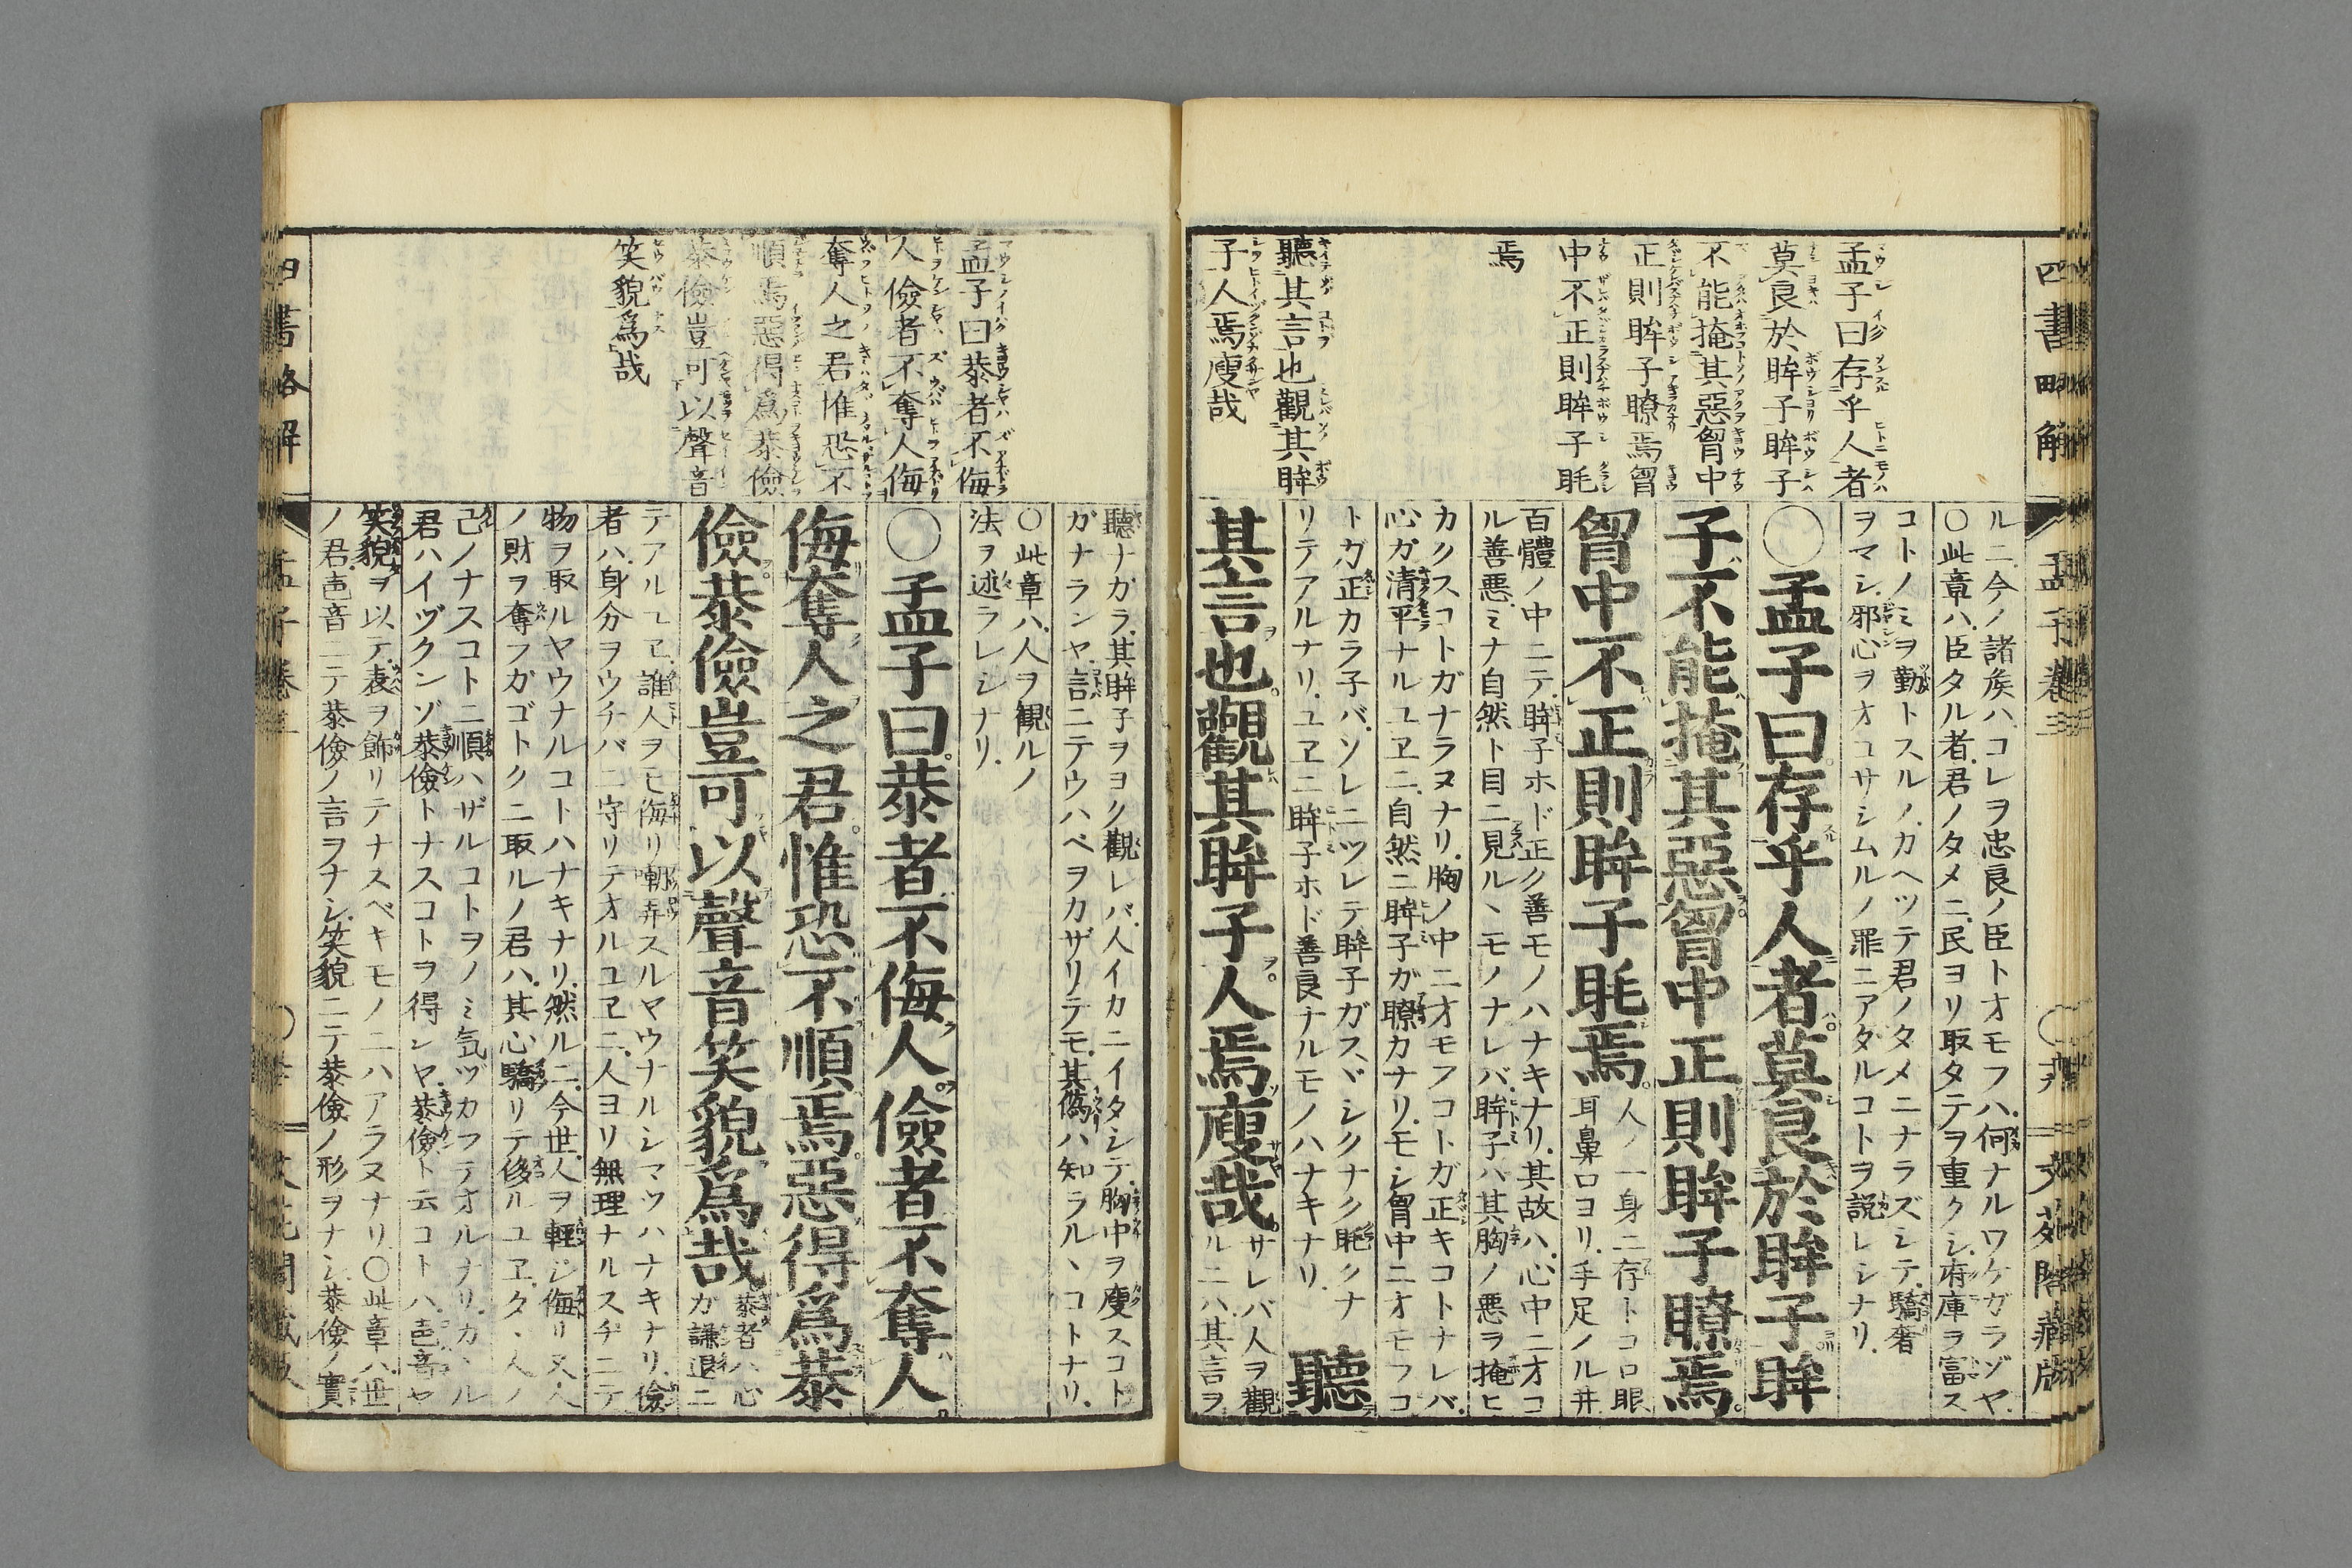 四書略解
孟子卷三
文苑閣藏版
孟子曰存乎人者
莫良於眸子眸子
不能掩其惡胷中
正則眸子瞭焉胷
中不正則眸子眊
焉
聽其言也觀其眸
子人焉廋哉
ルニ今ノ諸矦ハコレヲ忠良ノ臣トオモフハ何ナルワケガラゾヤ
○此章ハ臣タル者君ノタメニ民ヨリ取タテヲ重クシ府庫ヲ富ス
コトノミヲ勤トスルノカヘツテ君ノタメニナラズシテ驕奢
ヲマシ邪心ヲオコサシムルノ罪ニアタルコトヲ説レシナリ
○孟子曰存乎人者莫良於眸子眸
子不能掩其惡胷中正則眸子瞭焉
胷中不正則眸子眊焉
人ノ一身ニ存トコロ眼
耳鼻口ヨリ手足ノル井
百體ノ中ニテ眸子ホド正ク善モノハナキナリ其故ハ心中ニオコ
ル善惡ミナ自然ト目ニ見ルヽモノナレバ眸子ハ其胸ノ悪ヲ掩ヒ
カクスコトガナラヌナリ胸ノ中ニオモフコトガ正キコトナレバ
心ガ清平ナルユヱニ自然ニ眸子ガ瞭カナリモシ胷中ニオモフコ
トガ正カラ子バソレニツレテ眸子ガスヾシクナク眊クナ
リテアルナリユヱニ眸子ホド善良ナルモノハナキナリ
聽
其言也觀其眸子人焉廋哉
サレバ人ヲ觀
ルニハ其言ヲ
孟子曰恭者不侮
人儉者不奪人侮
奪人之君惟恐不
順焉惡得爲恭儉
恭儉豈可以聲音
笑貌爲哉
聽ナガラ其眸子ヲヨク觀レバ人イカニイタシテ胸中ヲ廋スコト
ガナランヤ言ニテウハベヲカザリテモ其僞ハ知ラルヽコトナリ
○此章ハ人ヲ觀ルノ
法ヲ述ラレシナリ
○孟子曰恭者不侮人儉者不奪人
侮奪人之君惟恐不順焉惡得爲恭
儉恭儉豈可以聲音笑貌爲哉
恭者ハ心
ガ謙退ニ
テアルユヱ誰人ヲモ侮リ嘲弄スルヤウナルシマツハナキナリ儉
者ハ身分ヲウチバニ守リテオルユヱニ人ヨリ無理ナルスヂニテ
物ヲ取ルヤウナルコトハナキナリ然ルニ今世人ヲ輕ジ侮リ又人
ノ財ヲ奪フガゴトクニ取ルノ君ハ其心驕リテ侈ルユヱタヽ人ノ
己ノナスコトニ順ハザルコトヲノミ気ヅカフテオルナリカヽル
君ハイヅクンゾ恭儉トナスコトヲ得ンヤ恭儉ト云コトハ声音ヤ
笑貌ヲ以テ表ヲ飾リテナスベキモノニハアラヌナリ○此章ハ世
ノ君声音ニテ恭儉ノ言ヲナシ笑貌ニテ恭儉ノ形ヲナシ恭儉ノ實
四書略解
孟子卷三